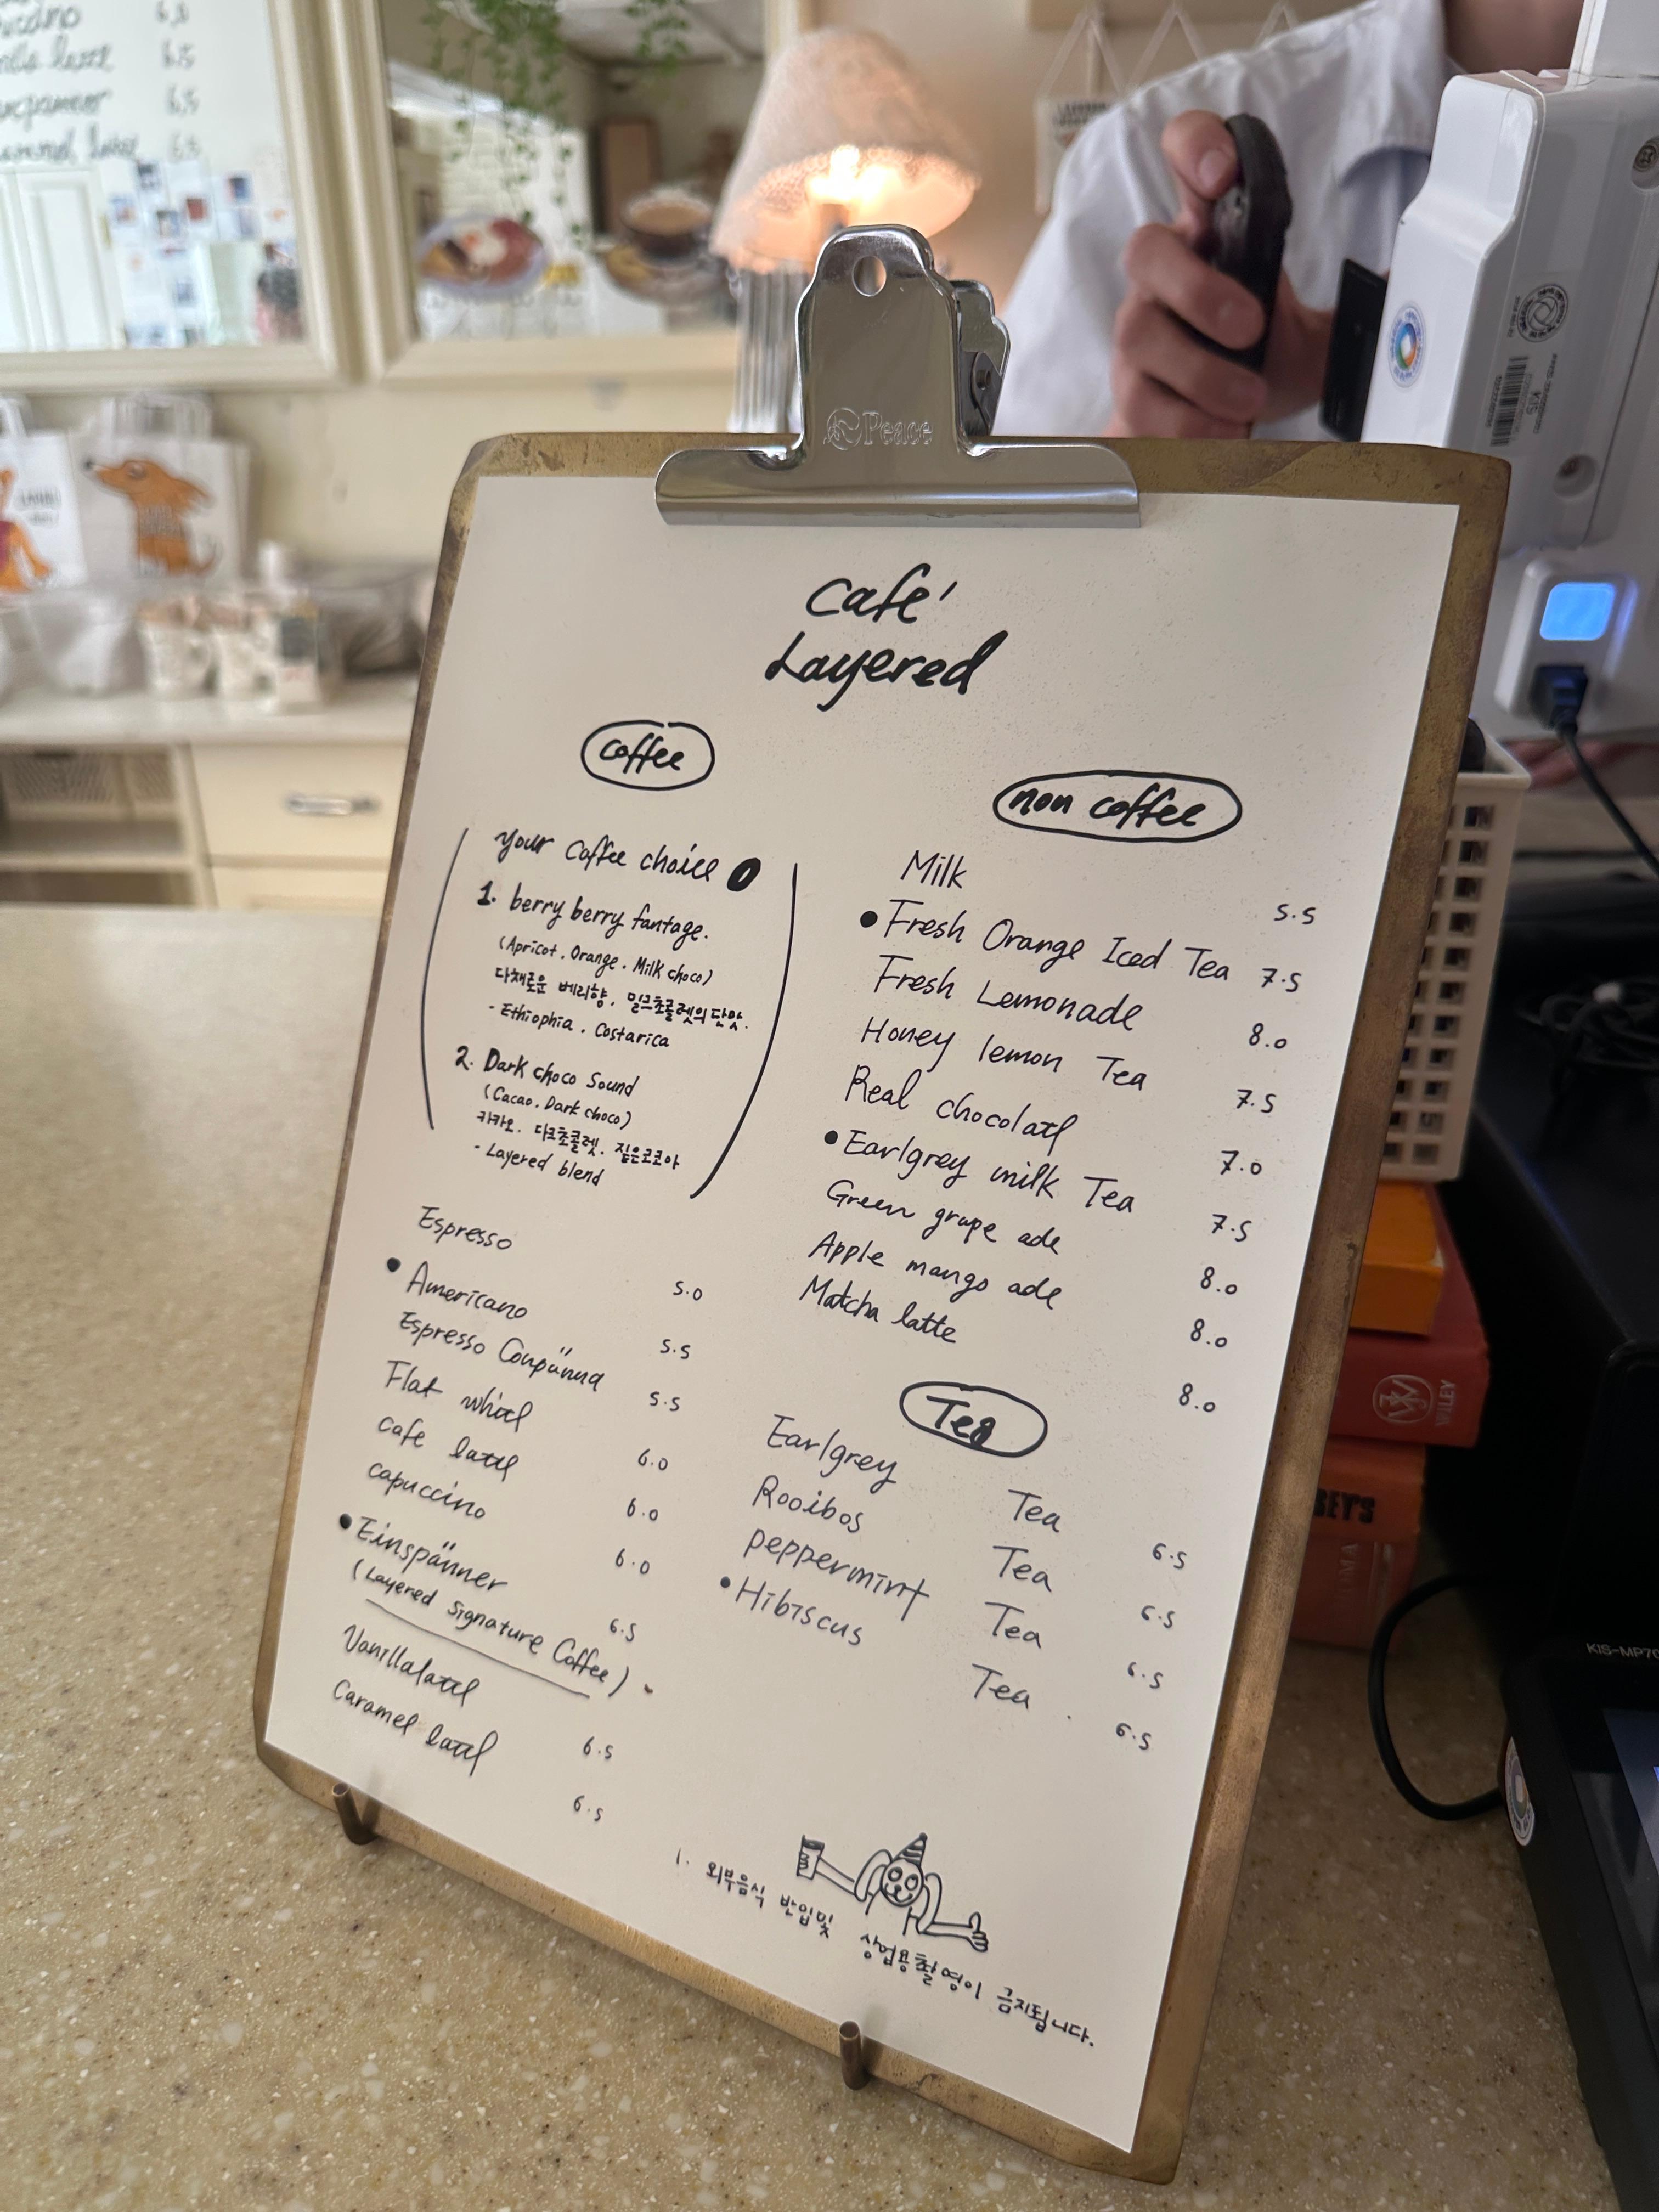 Peace
Café
Layered
coffee
your coffee choice
1. berry berry fantage.
(Apricot. Orange. Milk choco)
다채로운 베리향, 밀크초콜렛의 단맛.
- Ethiophia. Costarica
2. Dark choco Sound
(Cacao. Dark choco)
카카오. 다크초콜렛. 짙은코코아
- Layered blend
Espresso 5.0
• Americano 5.5
Espresso Conpänna 5.5
Flat white 6.0
cafe latte 6.0
capuccino 6.0
• Einspänner 6.5
(Layered Signature Coffee)
Vanillalatte 6.5
Caramel latte 6.5
non coffee
Milk 5.5
• Fresh Orange Iced Tea 7.5
Fresh Lemonade 8.0
Honey lemon Tea 7.5
Real chocolate 7.0
• Earlgrey milk Tea 7.5
Green grape ade 8.0
Apple mango ade 8.0
Matcha latte 8.0
Tea
Earlgrey Tea 6.5
Rooibos Tea 6.5
peppermint Tea 6.5
• Hibiscus Tea. 6.5
1. 외부음식 반입및 상업용촬영이 금지됩니다.
WILEY
KIS
KIS-MP70